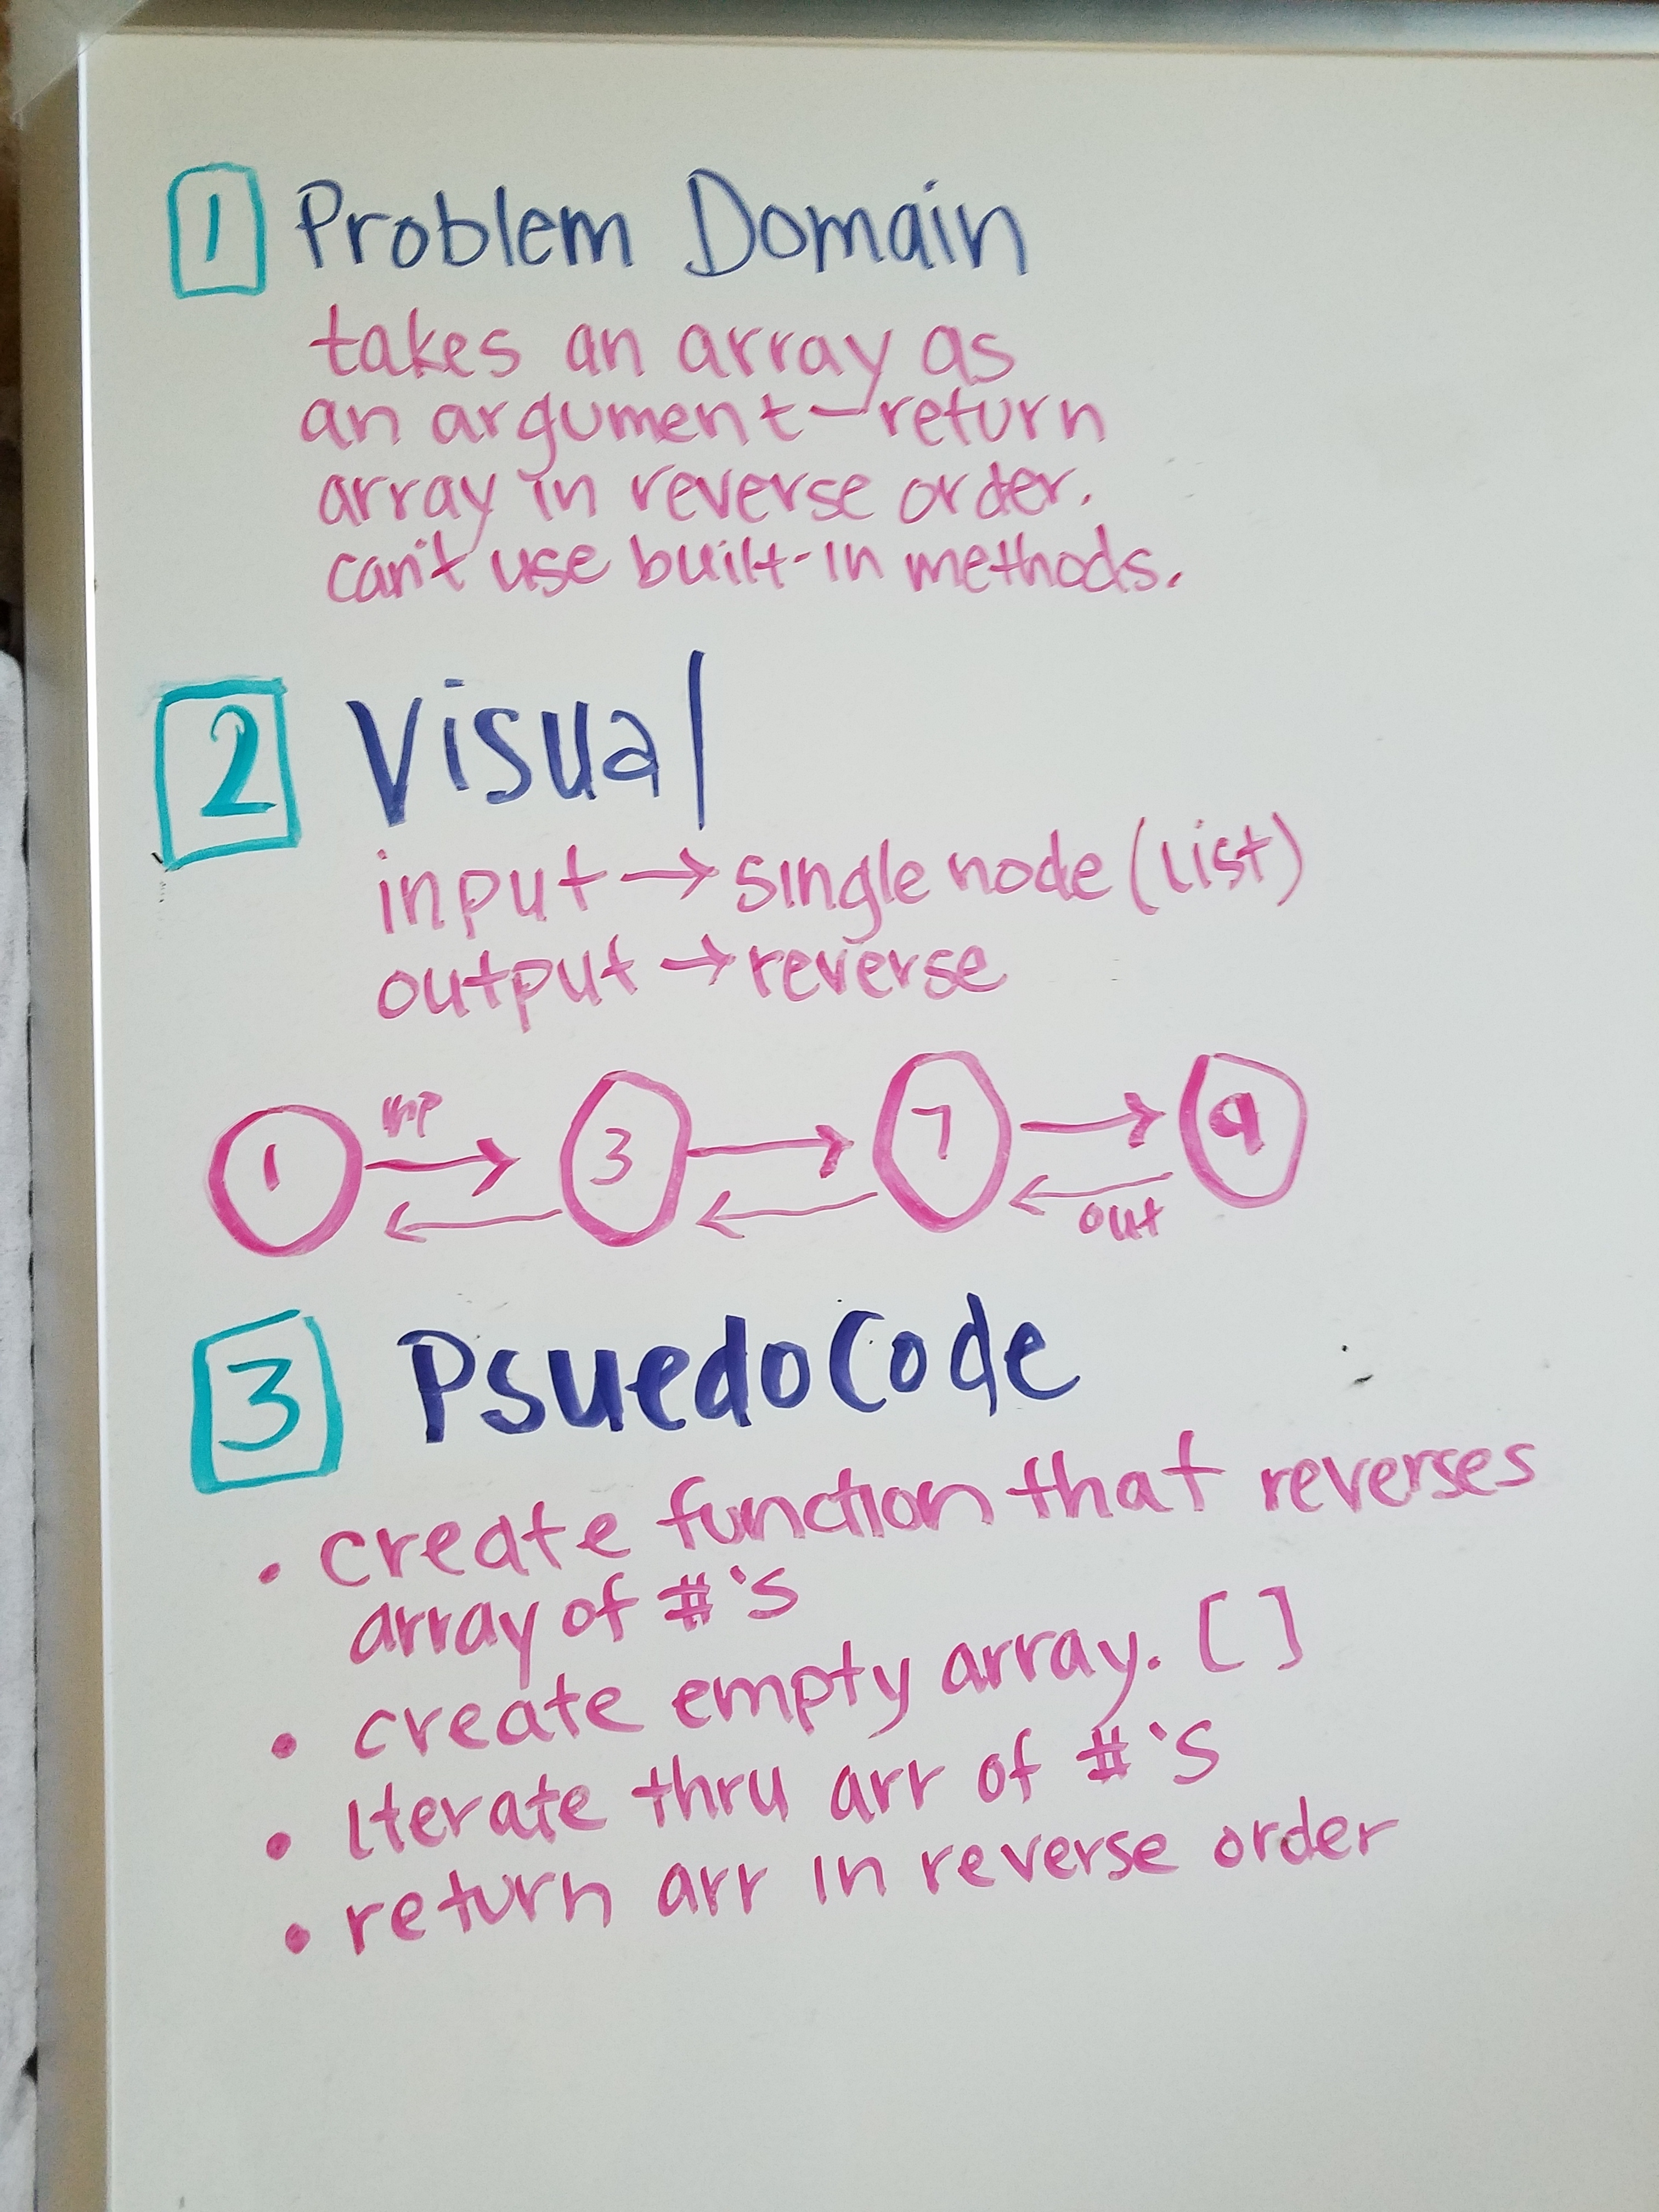 1 Problem Domain
takes an array as
an argument—return
array in reverse order.
can't use built-in methods.
2 Visual
input → single node (list)
output → reverse
inp
1 → 3 → 7 → 9
← ← ←
out
3 PsuedoCode
• create function that reverses
array of #'s
• create empty array. []
• Iterate thru arr of #'s
• return arr in reverse order